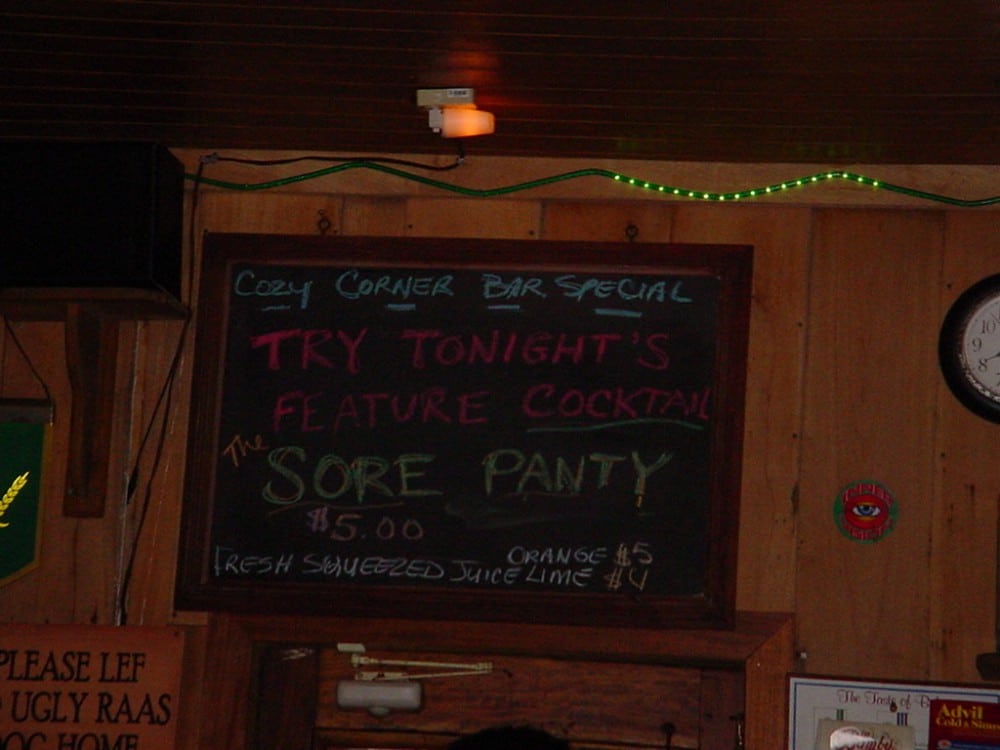 COZY CORNER BAR SPECIAL
TRY TONIGHT'S
FEATURE COCKTAIL
The
SORE PANTY
$5.00
ORANGE $5
FRESH SQUEEZED JUICE LIME $4
10
9
8
PLEASE LEF
UGLY RAAS
DOG HOME
The Taste of
Advil
Cold & Sinus